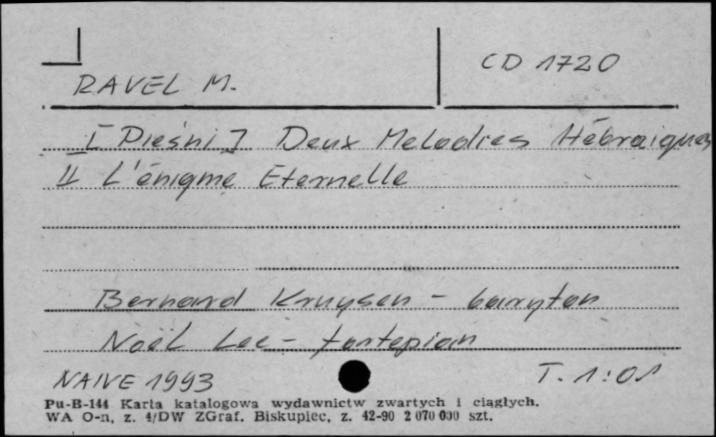 CD 1720
RAVEL M.
[Pieśni] Deux Melodies Hébraiques
II L'énigme Eternelle
Bernard Kruysen - baryton
Noël Lee - fortepian
NAIVE 1993 T. 1:01
Pu-B-144 Karta katalogowa wydawnictw zwartych i ciągłych.
WA O-n, z. 4/DW ZGraf. Biskupiec, z. 42-90 2 070 000 szt.